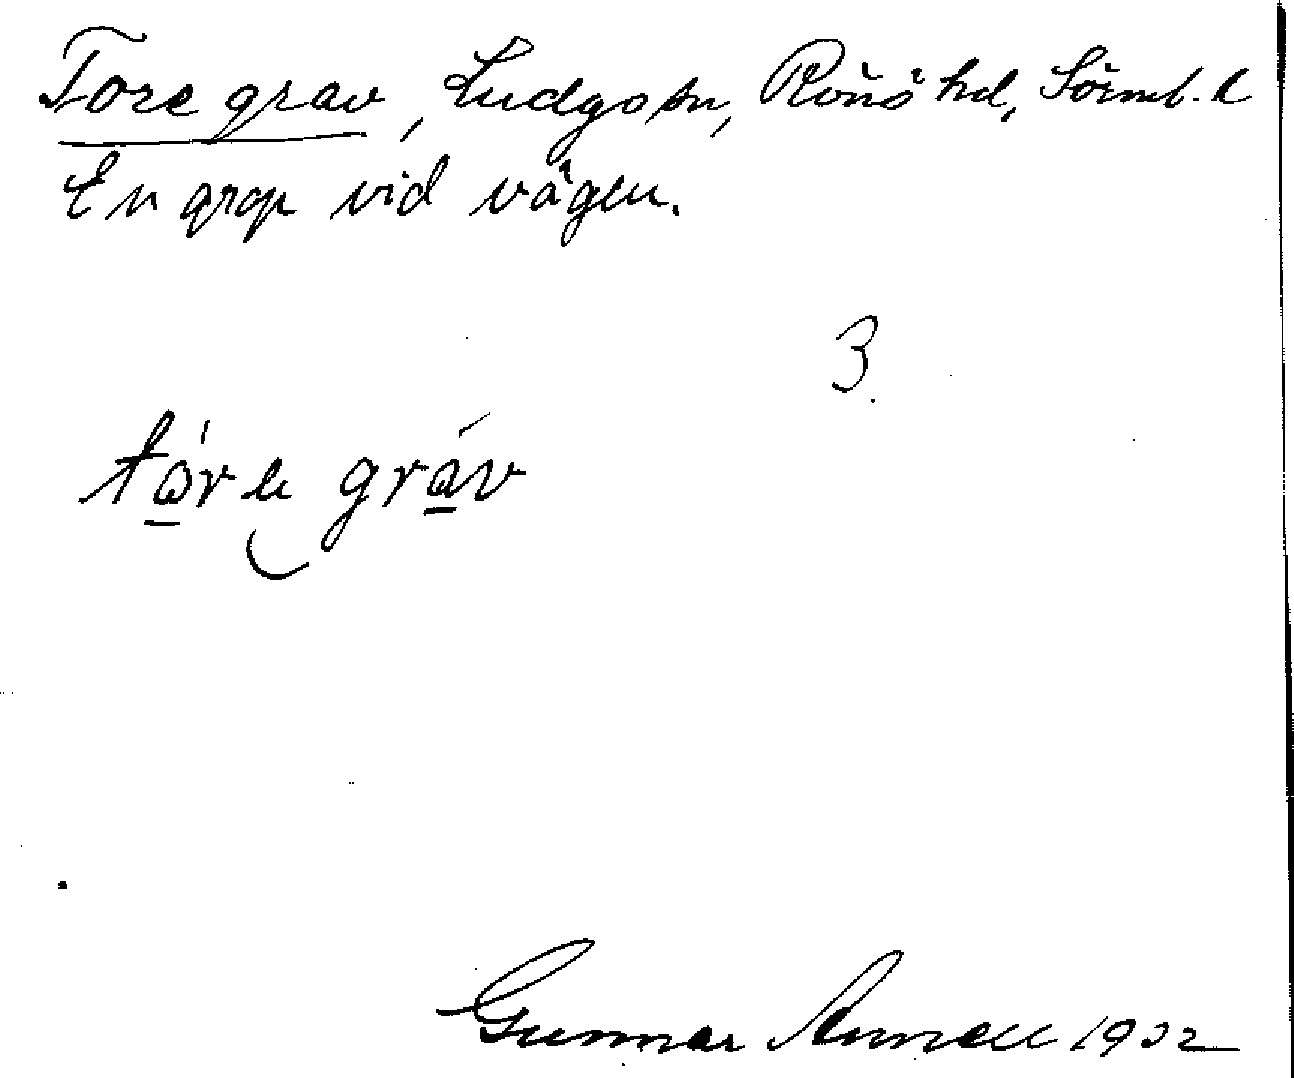 Tore grav, Ludgo sn, Rönö hd, Sörml. l
En grop vid vägen.
3.
tɷ̀rɛ grɑ́v
Gunnar Annell 1932